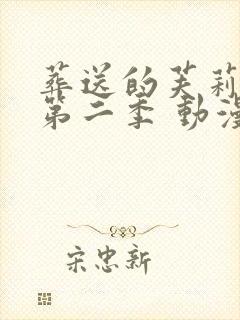 葬送的芙莉
第二季 動漫
宋忠新